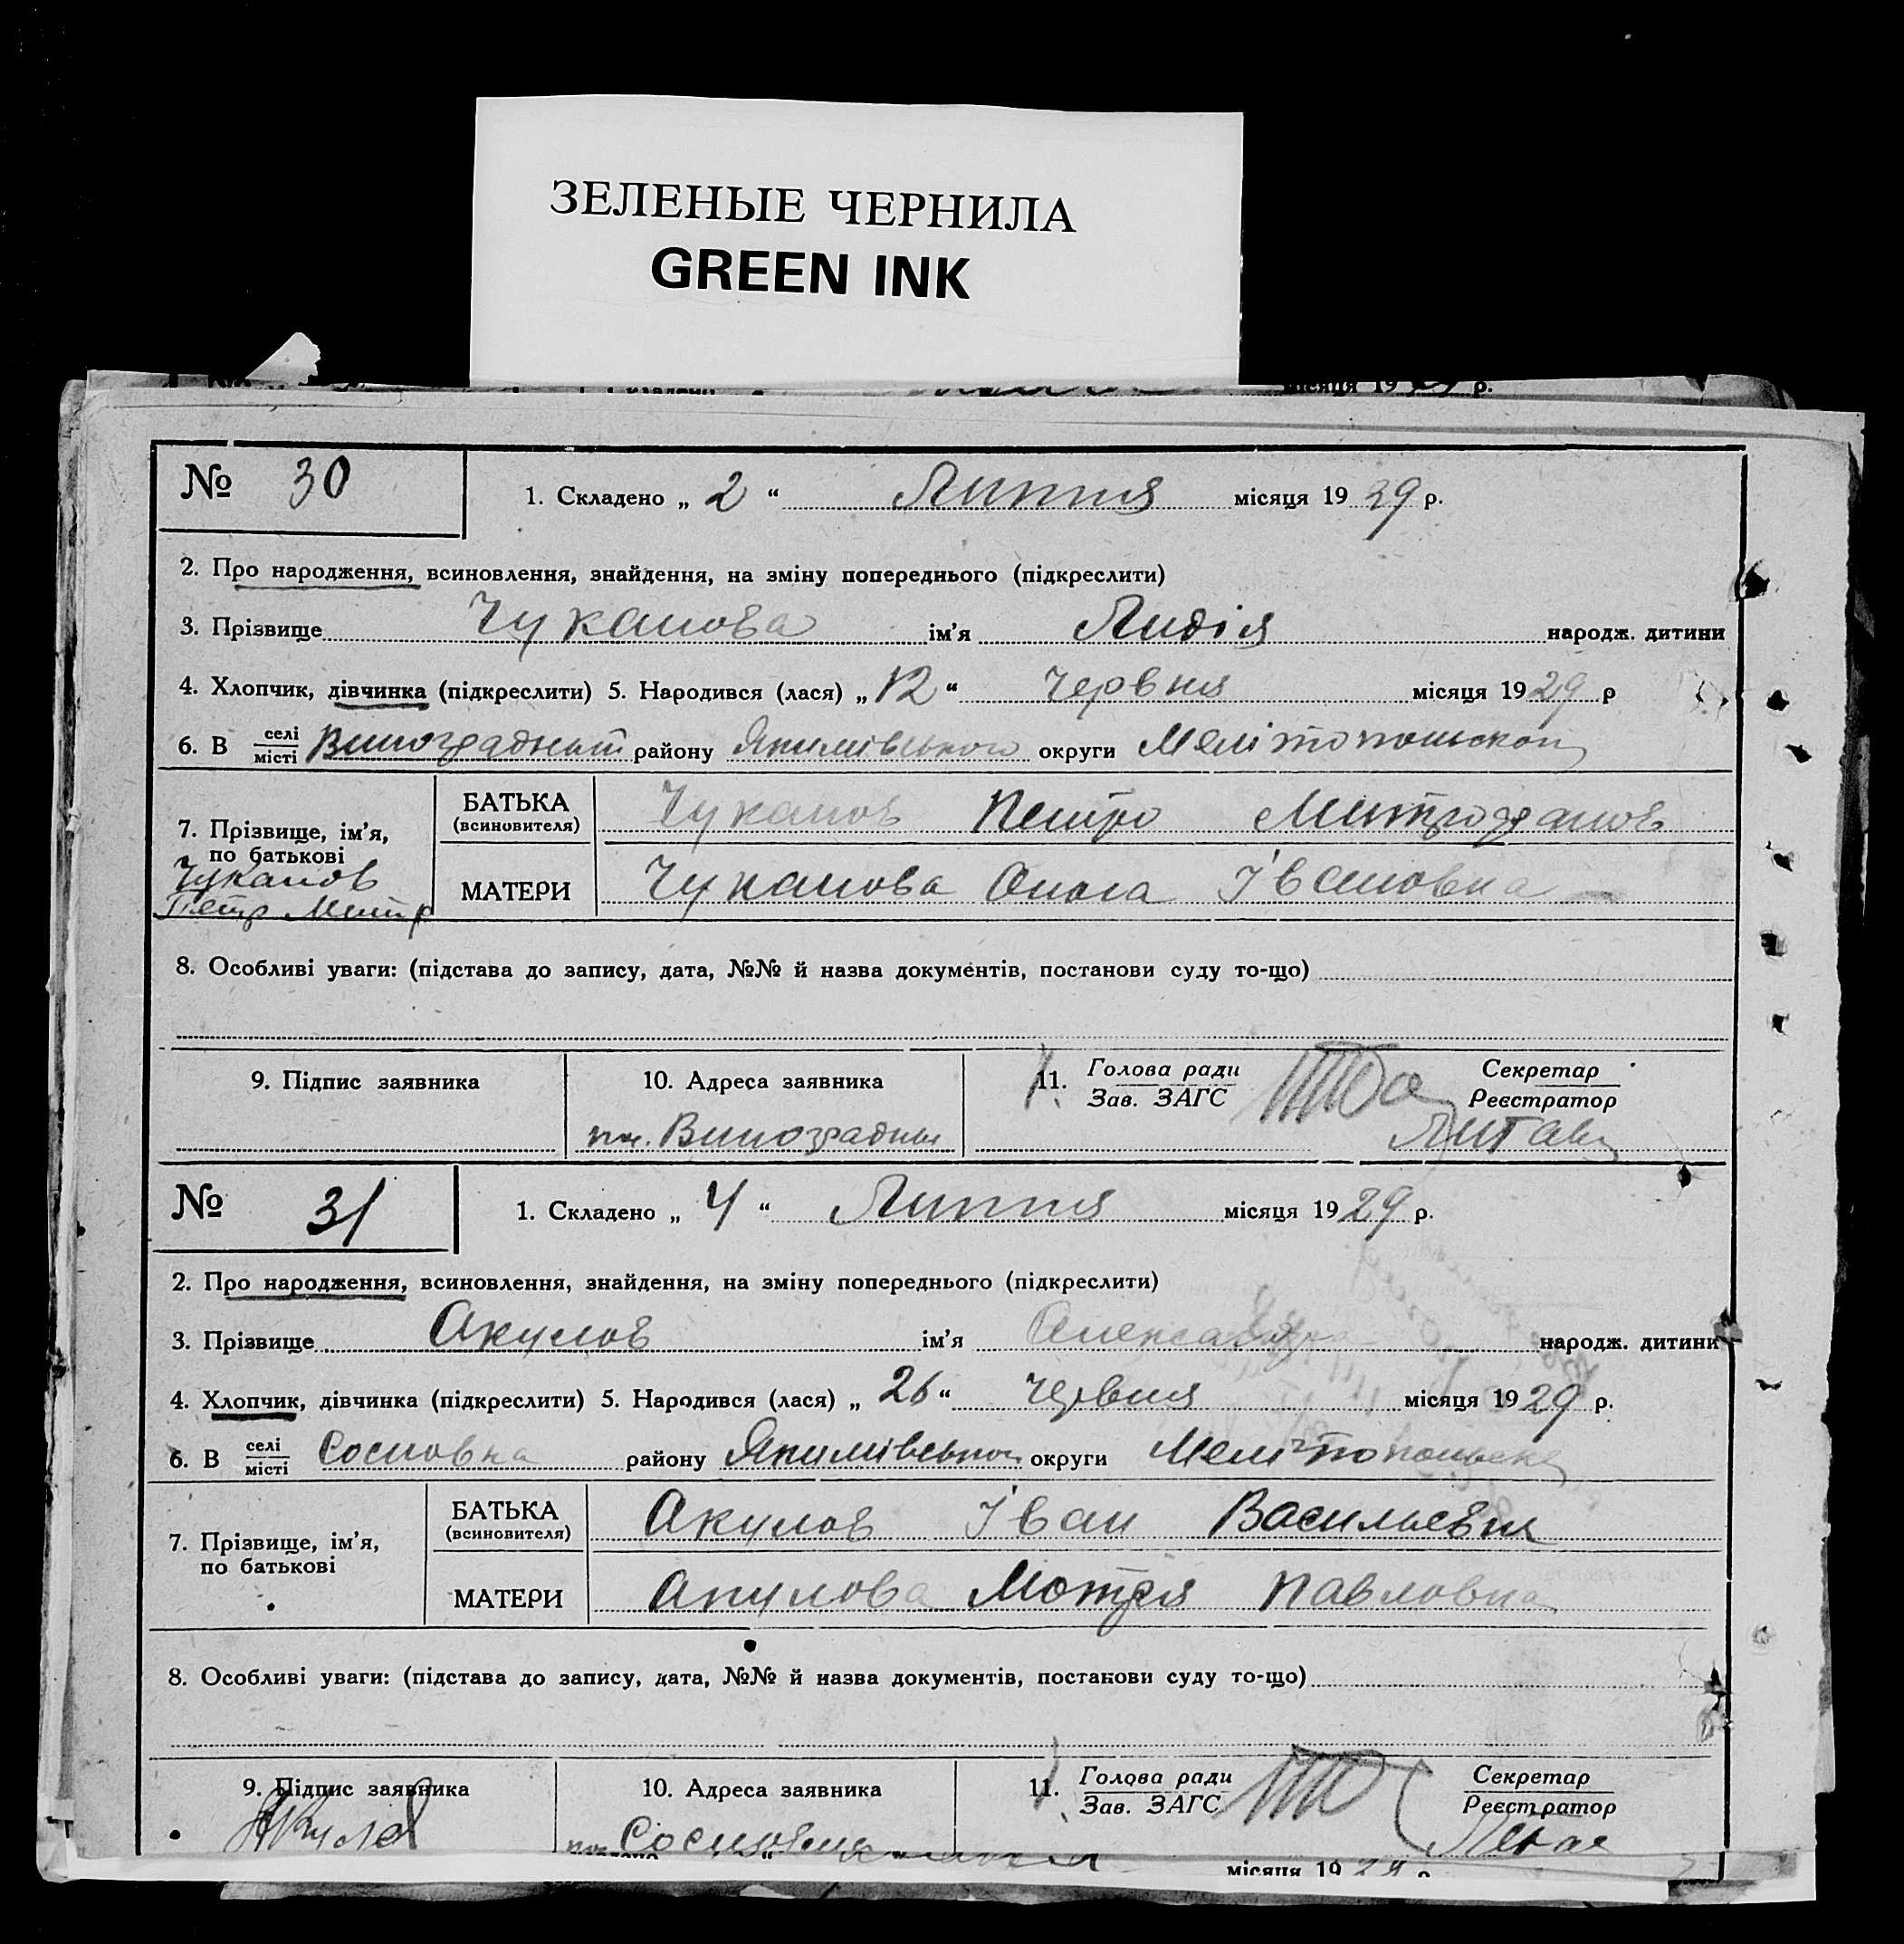 ЗЕЛЕНЫЕ ЧЕРНИЛА
GREEN INK
місяця 19 р.
№ 30
1. Складено „ 2 “ Липня місяця 19 29 р.
2. Про народження, всиновлення, знайдення, на зміну попереднього (підкреслити)
3. Прізвище Чуканова ім’я Лидія народж. дитини
4. Хлопчик, дівчинка (підкреслити) 5. Народився (лася) „ 12 “ Червня місяця 19 29 р
6. В селі/місті району Якимівського округи
7. Прізвище, ім’я, по батькові
Чуканов
Петр Митр
БАТЬКА (всиновителя) Чуканов Петро Митрофанов
МАТЕРИ Чуканова Івановна
8. Особливі уваги: (підстава до запису, дата, №№ й назва документів, постанови суду то-що)
9. Підпис заявника
10. Адреса заявника
11. Голова ради
Зав. ЗАГС
Секретар
Реєстратор
№ 31
1. Складено „ 4 “ Липня місяця 19 29 р.
2. Про народження, всиновлення, знайдення, на зміну попереднього (підкреслити)
3. Прізвище Акулов ім’я народж. дитини
4. Хлопчик, дівчинка (підкреслити) 5. Народився (лася) „ 26 “ Червня місяця 19 29 р.
6. В селі/місті Сосновка району округи
7. Прізвище, ім’я, по батькові
БАТЬКА (всиновителя) Акулов Іван
МАТЕРИ Акулова Мотря Павловна
8. Особливі уваги: (підстава до запису, дата, №№ й назва документів, постанови суду то-що)
9. Підпис заявника
10. Адреса заявника
11. Голова ради
Зав. ЗАГС
Секретар
Реєстратор
Акулов
місяця 19 29 р